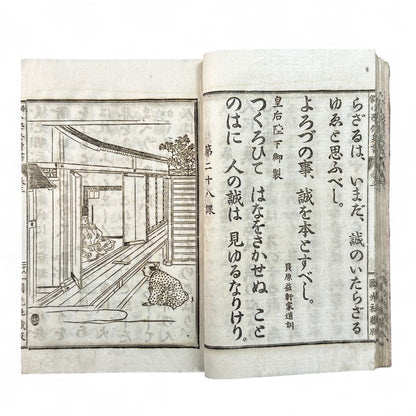 らざるは、いまだ、誠のいたらざる
ゆゑと思ふべし。
よろづの事、誠を本とすべし。
貝原益軒家道訓
皇后陛下御製
つくろひて はなをさかせぬ こと
のはに 人の誠は 見ゆるなりけり。
第二十八課